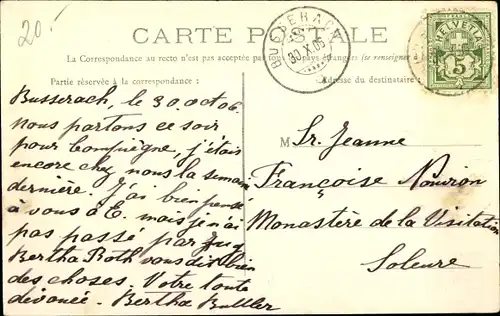 20.-
CARTE POSTALE
BUSSERACH
30.X.06
HELVETIA
5
La Correspondance au recto n'est pas acceptée par tous les pays étrangers (se renseigner
Partie réservée à la correspondance :
Adresse du destinataire :
Busserach, le 30. oct 06.
Nous partons ce soir
pour Compiègne, j'étais
encore chez nous la semaine
dernière. J'ai bien pensé
à vous à E. mais je n'ai
pas passé par Zug
Bertha Roth vous dit bien
des choses. Votre toute
dévouée. Bertha
M
Sr. Jeanne
Françoise
Monastère de la Visitation
Soleure